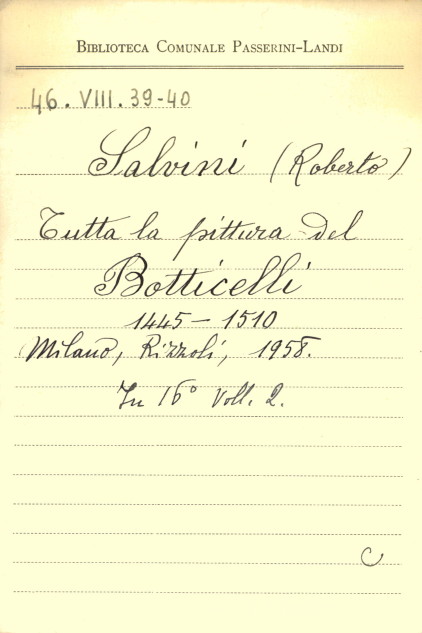 BIBLIOTECA COMUNALE PASSERINI-LANDI
46. VIII. 39-40
Salvini (Roberto)
Tutta la pittura del
Botticelli
1445-1510
Milano, Rizzoli, 1958.
In 16° Voll. 2.
C